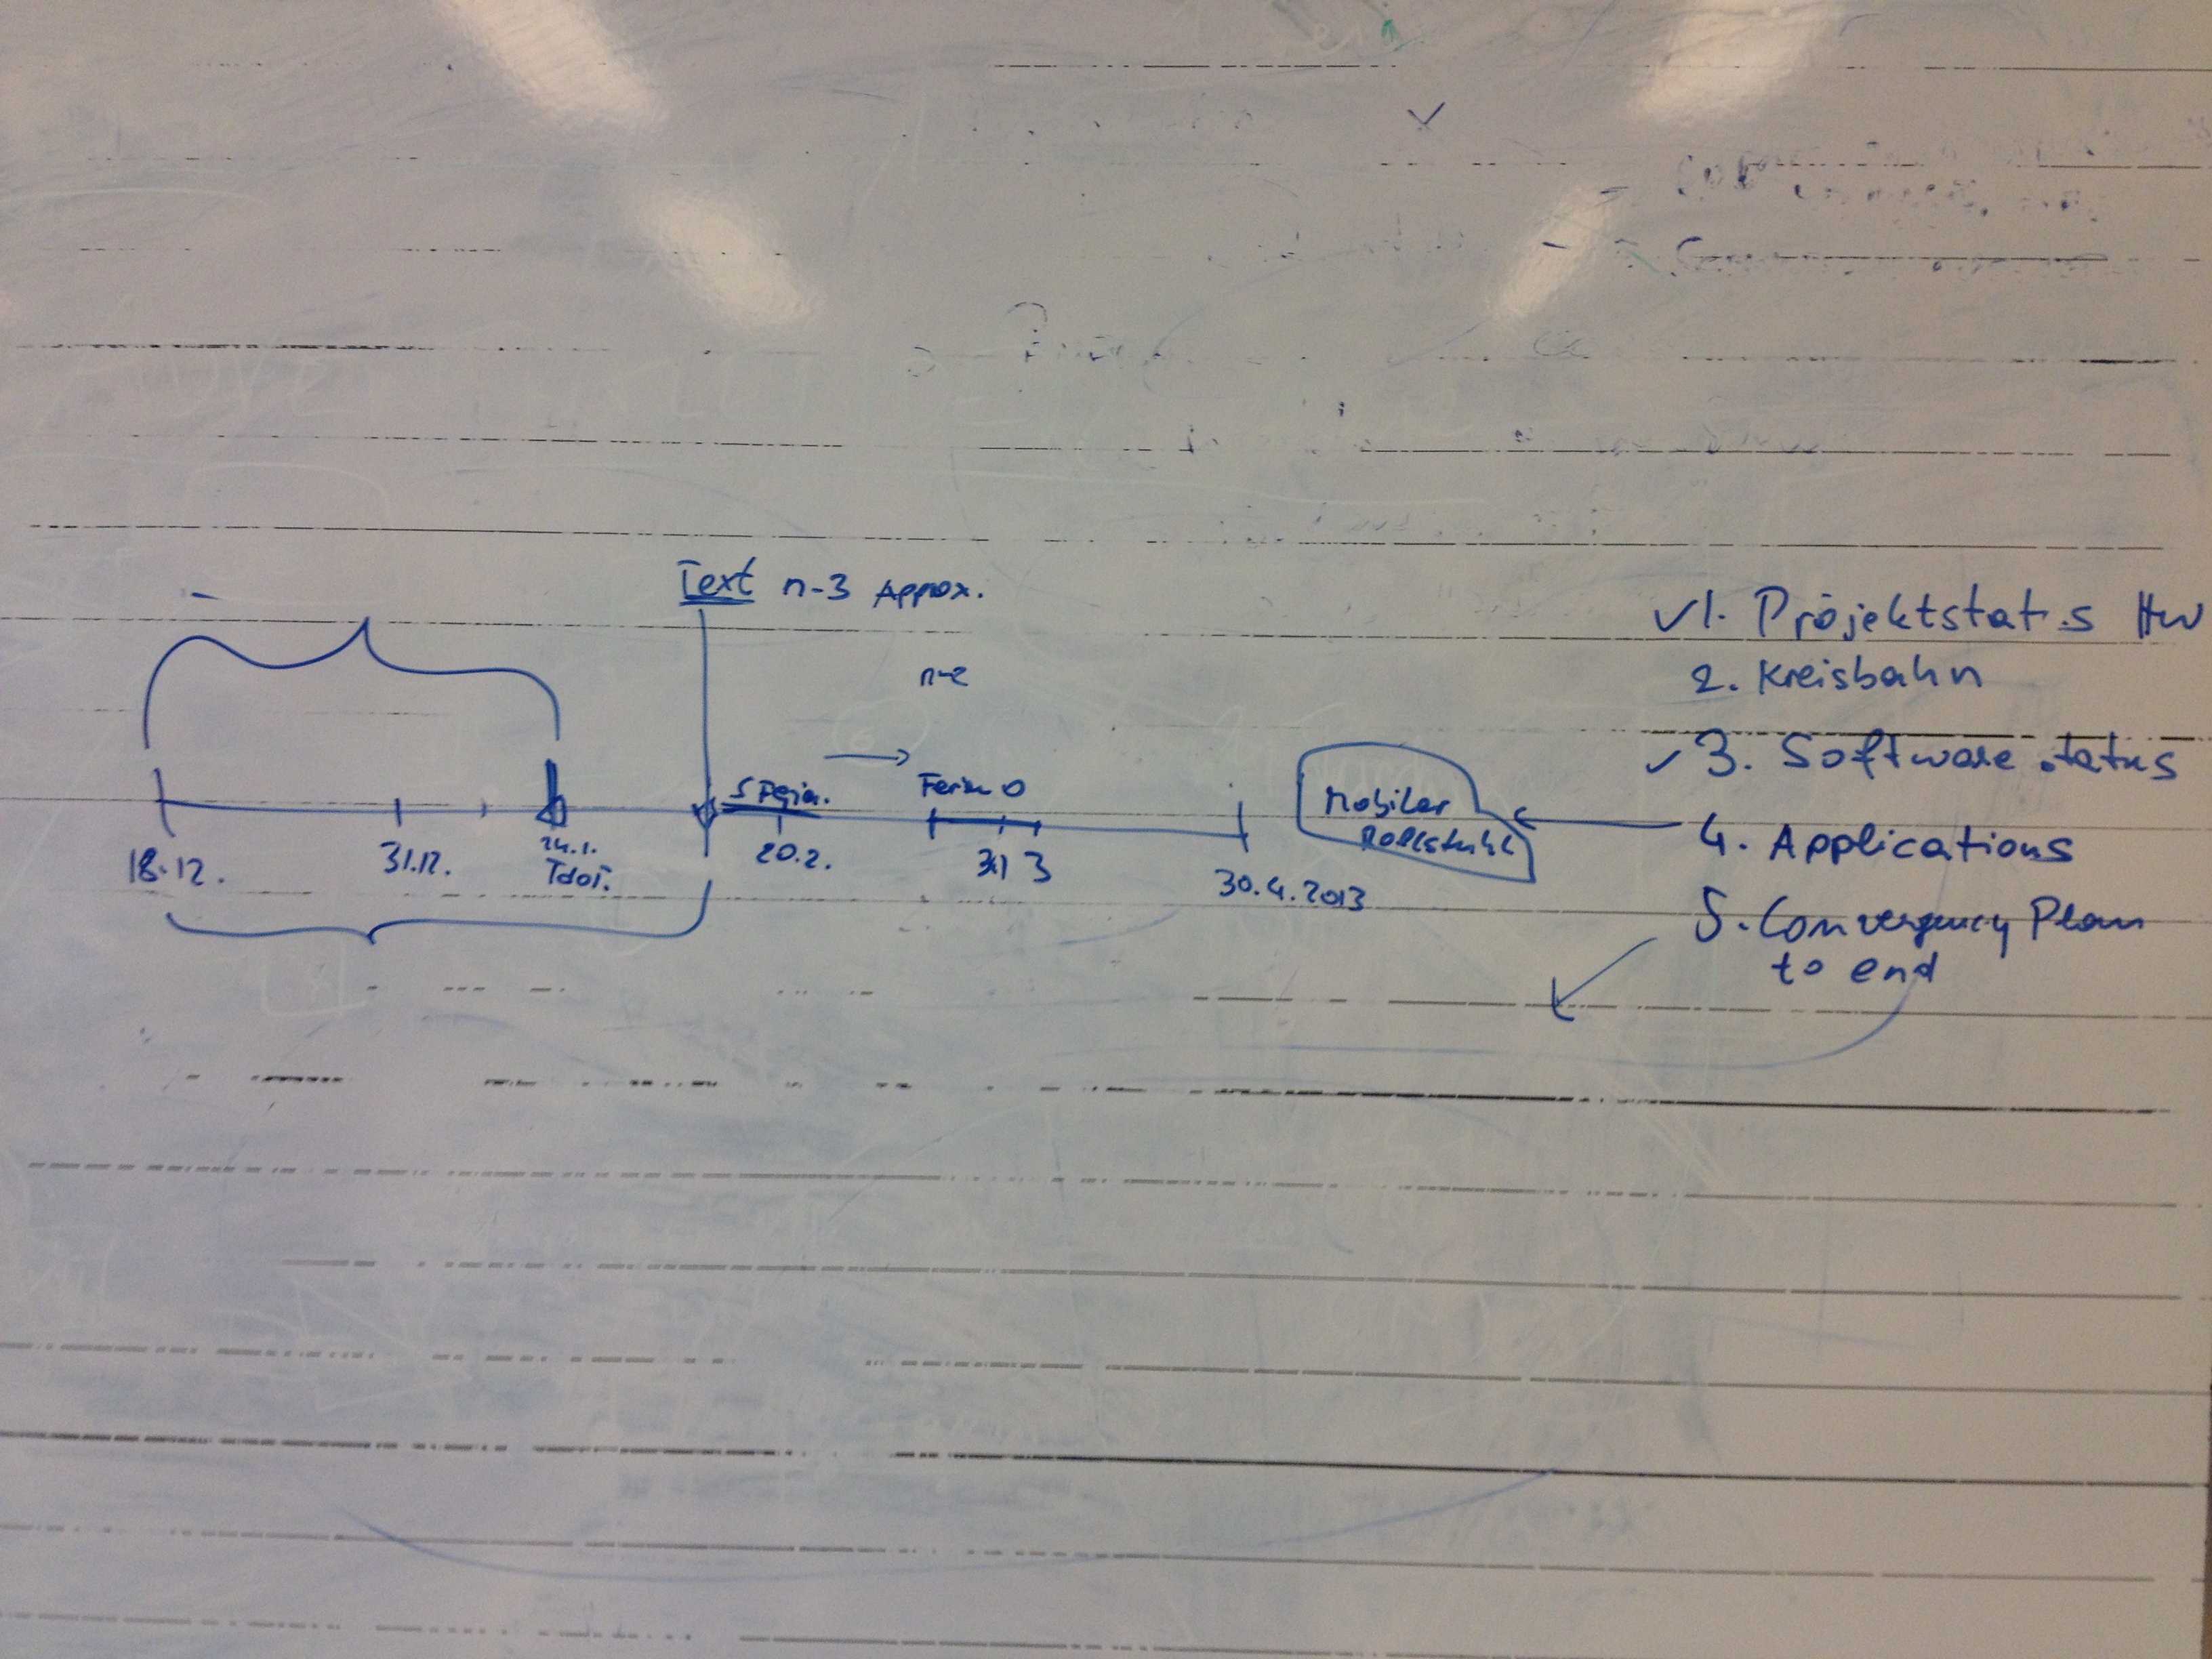 Text n-3 Approx.
n-2
S Ferien.
Ferien O
18.12.
31.12.
24.1.
TdoT.
20.2.
31 3
30.4.2013
Mobiler
Rollstuhl
✓1. Projektstatus HW
2. Kreisbahn
✓3. Software status
4. Applications
5. Convergency Plan
to end